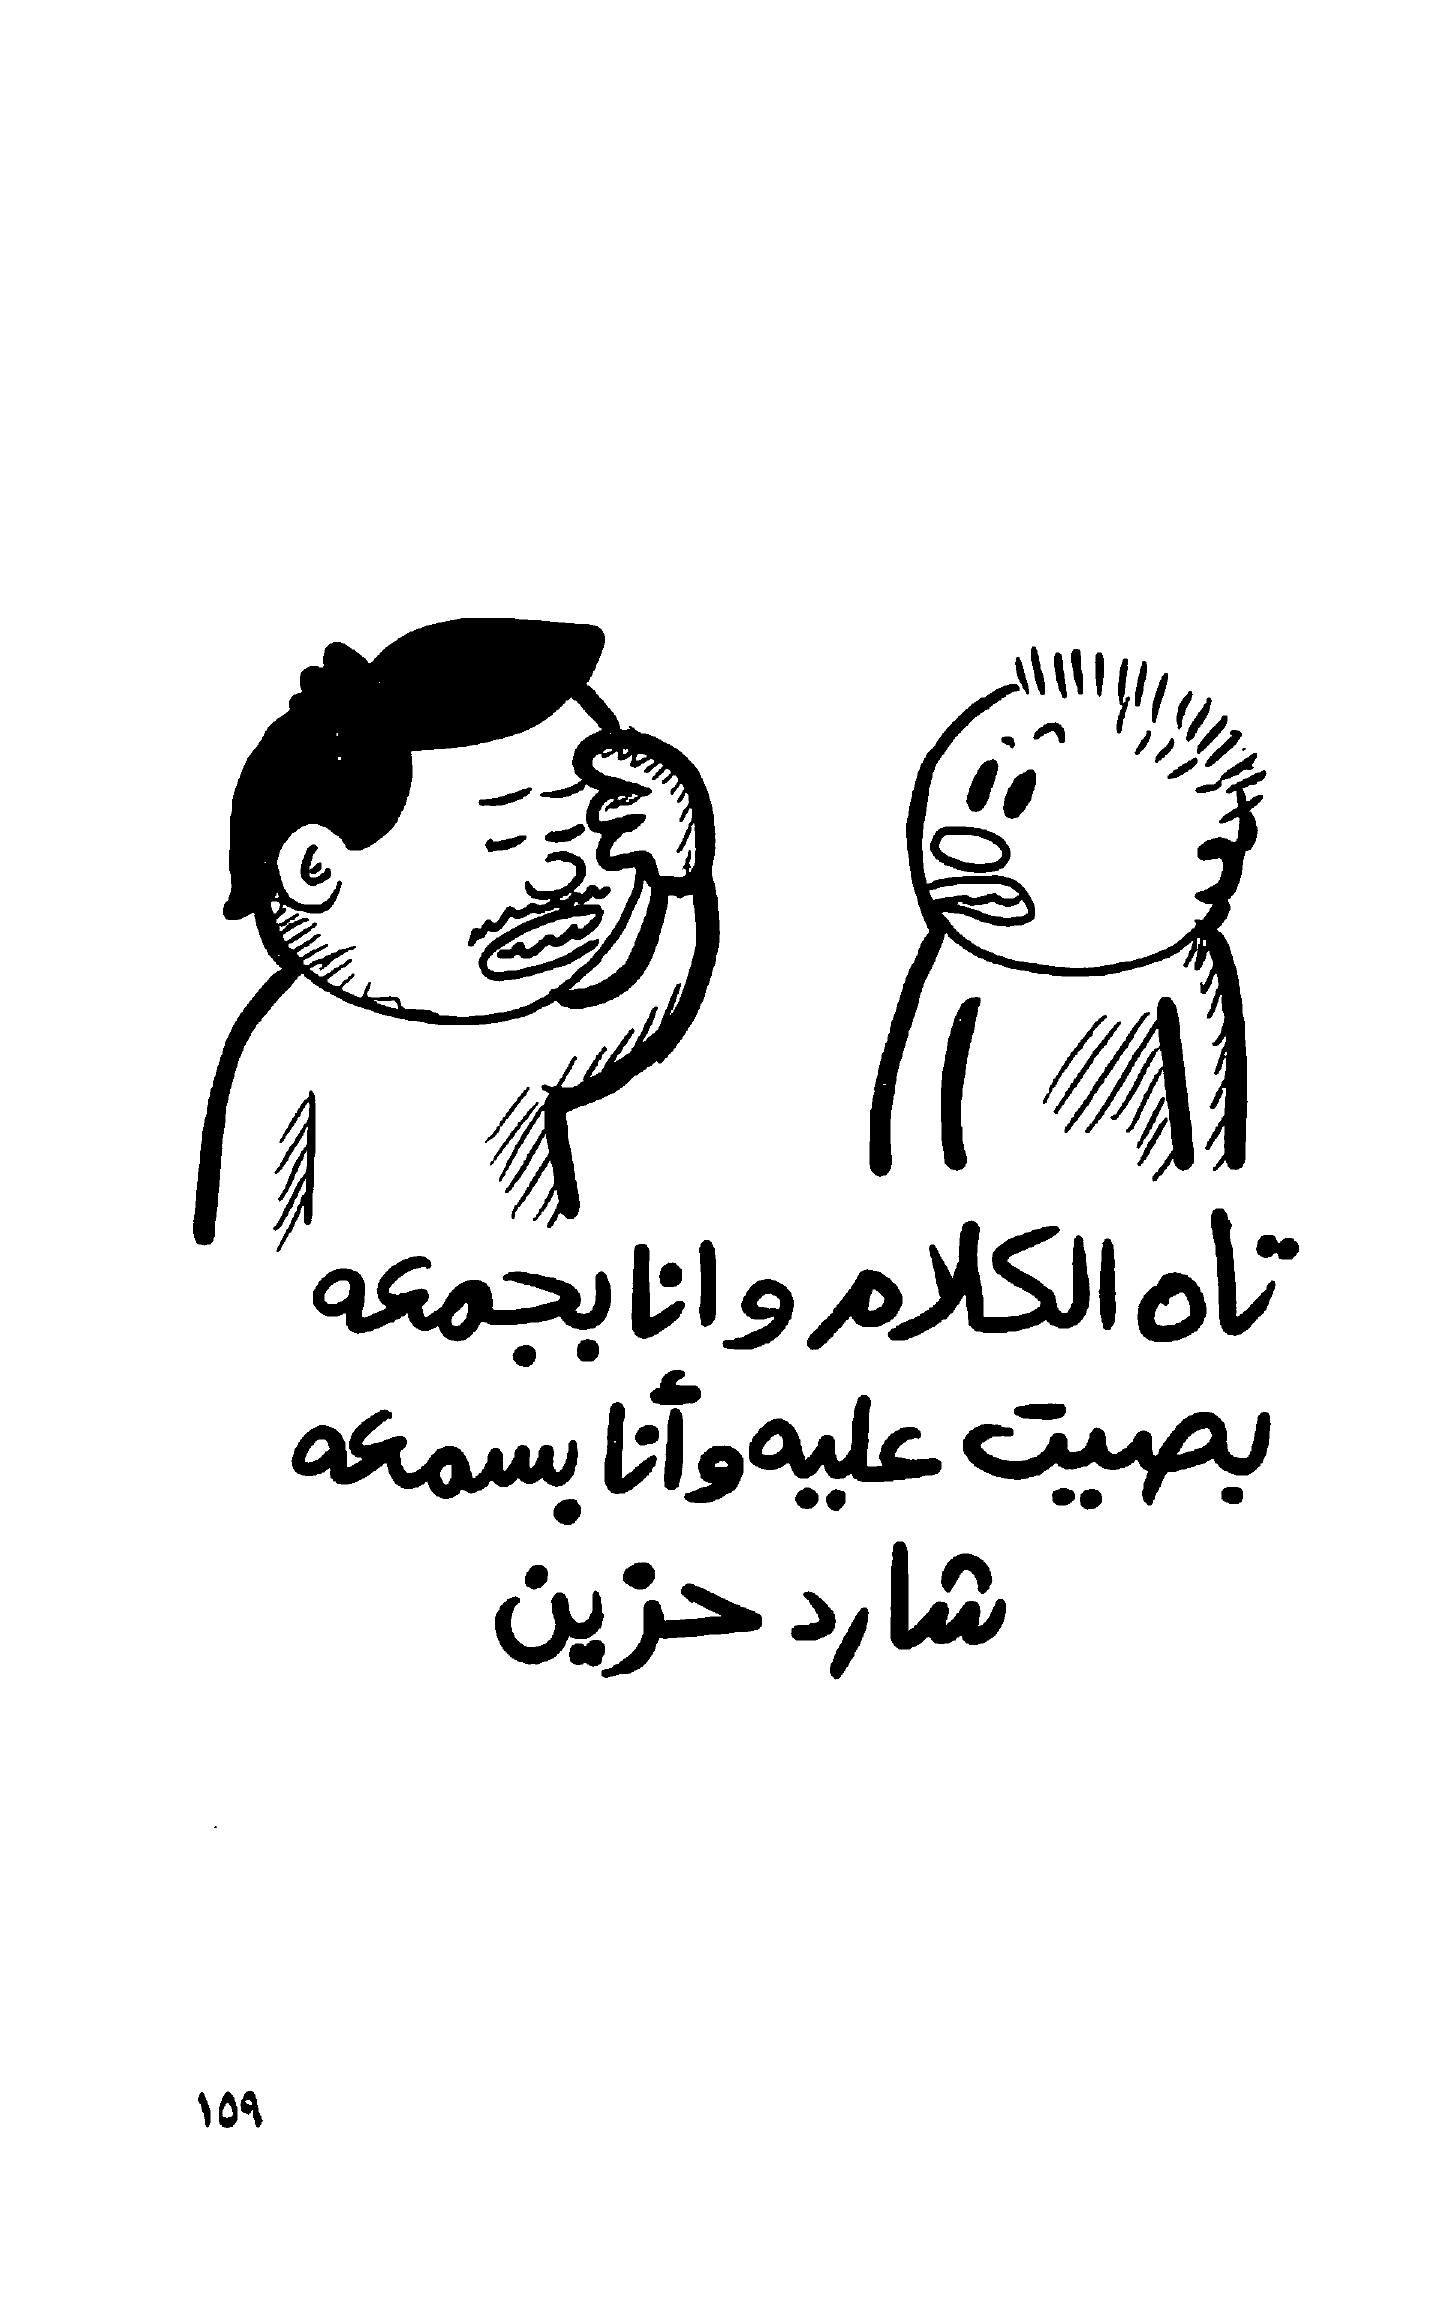 تاه الكلام وانا بجمعه
بصيت عليه وأنا بسمعه
شارد حزين
١٥٩